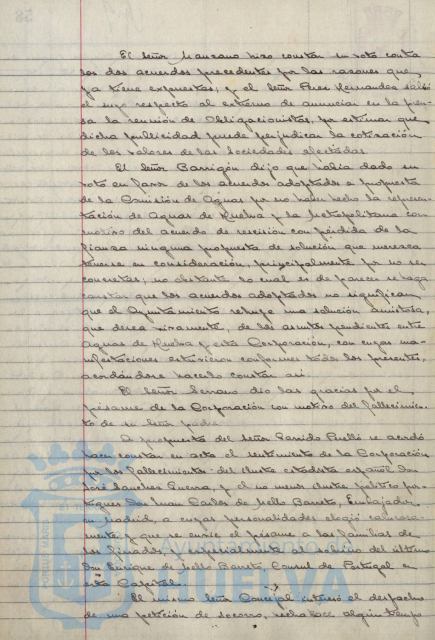 El Señor Manzano hizo constar su voto contra
los dos acuerdos precedentes por las razones que
ya tiene expuestas; y el Señor Perez Hernandez salvó
el suyo respecto al extremo de anunciar en la pren-
sa la reunión de Obligacionistas, por estimar que
dicha publicidad puede perjudicar la cotización
de los valores de las Sociedades afectadas.
El Señor Barrigón dijo que había dado su
voto en favor de los acuerdos adoptados a propuesta
de la Comisión de Aguas por no haber hecho la represen-
tación de Aguas de Huelva y la Metropolitana con
motivo del acuerdo de rescisión con pérdida de la
fianza ninguna propuesta de solución que merezca
tenerse en consideración, principalmente por no ser
concretas; no obstante lo cual es de parecer se haga
constar que los acuerdos adoptados no significan
que el Ayuntamiento rehuye una solución amistosa,
que desea vivamente, de los asuntos pendientes entre
Aguas de Huelva y esta Corporación, con cuyas ma-
nifestaciones estuvieron conformes todos los presentes,
acordándose hacerlo constar así.
El Señor Serrano dio las gracias por el
pésame de la Corporación con motivo del fallecimien-
to de su Señor padre.
A propuesta del Señor Garrido Perelló se acordó
hacer constar en acta el sentimiento de la Corporación
por los fallecimientos del ilustre estadista español Don
José Sanchez Guerra, y el no menos ilustre político por-
tugues Don Juan Carlos de Mello Barreto, Embajador
en Madrid, a cuyas personalidades elogió calurosa-
mente y que se envíe el pésame a las familias de
los finados, y especialmente al sobrino del último
Don Enrique de Mello Barreto, Consul de Portugal en
esta Capital.
El mismo Señor Concejal interesó el despacho
de una petición de socorro, hecha hace algún tiempo
HUELVA